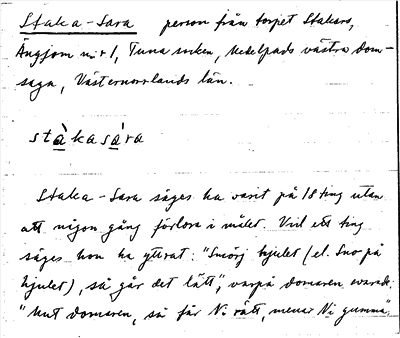 Staka-Sara person från torpet Stakaro,
Ängom nr 1, Tuna socken, Medelpads västra dom-
saga, Västernorrlands län.
stàkasára
Staka-Sara säges ha varit på 18 ting utan
att någon gång förlora i målet. Vid ett ting
säges hon ha yttrat: "Smörj hjulet (el. Sno på
hjulet), så går det lätt", varpå domaren svarade:
"Mut domaren, så får Ni rätt, menar Ni gumma".